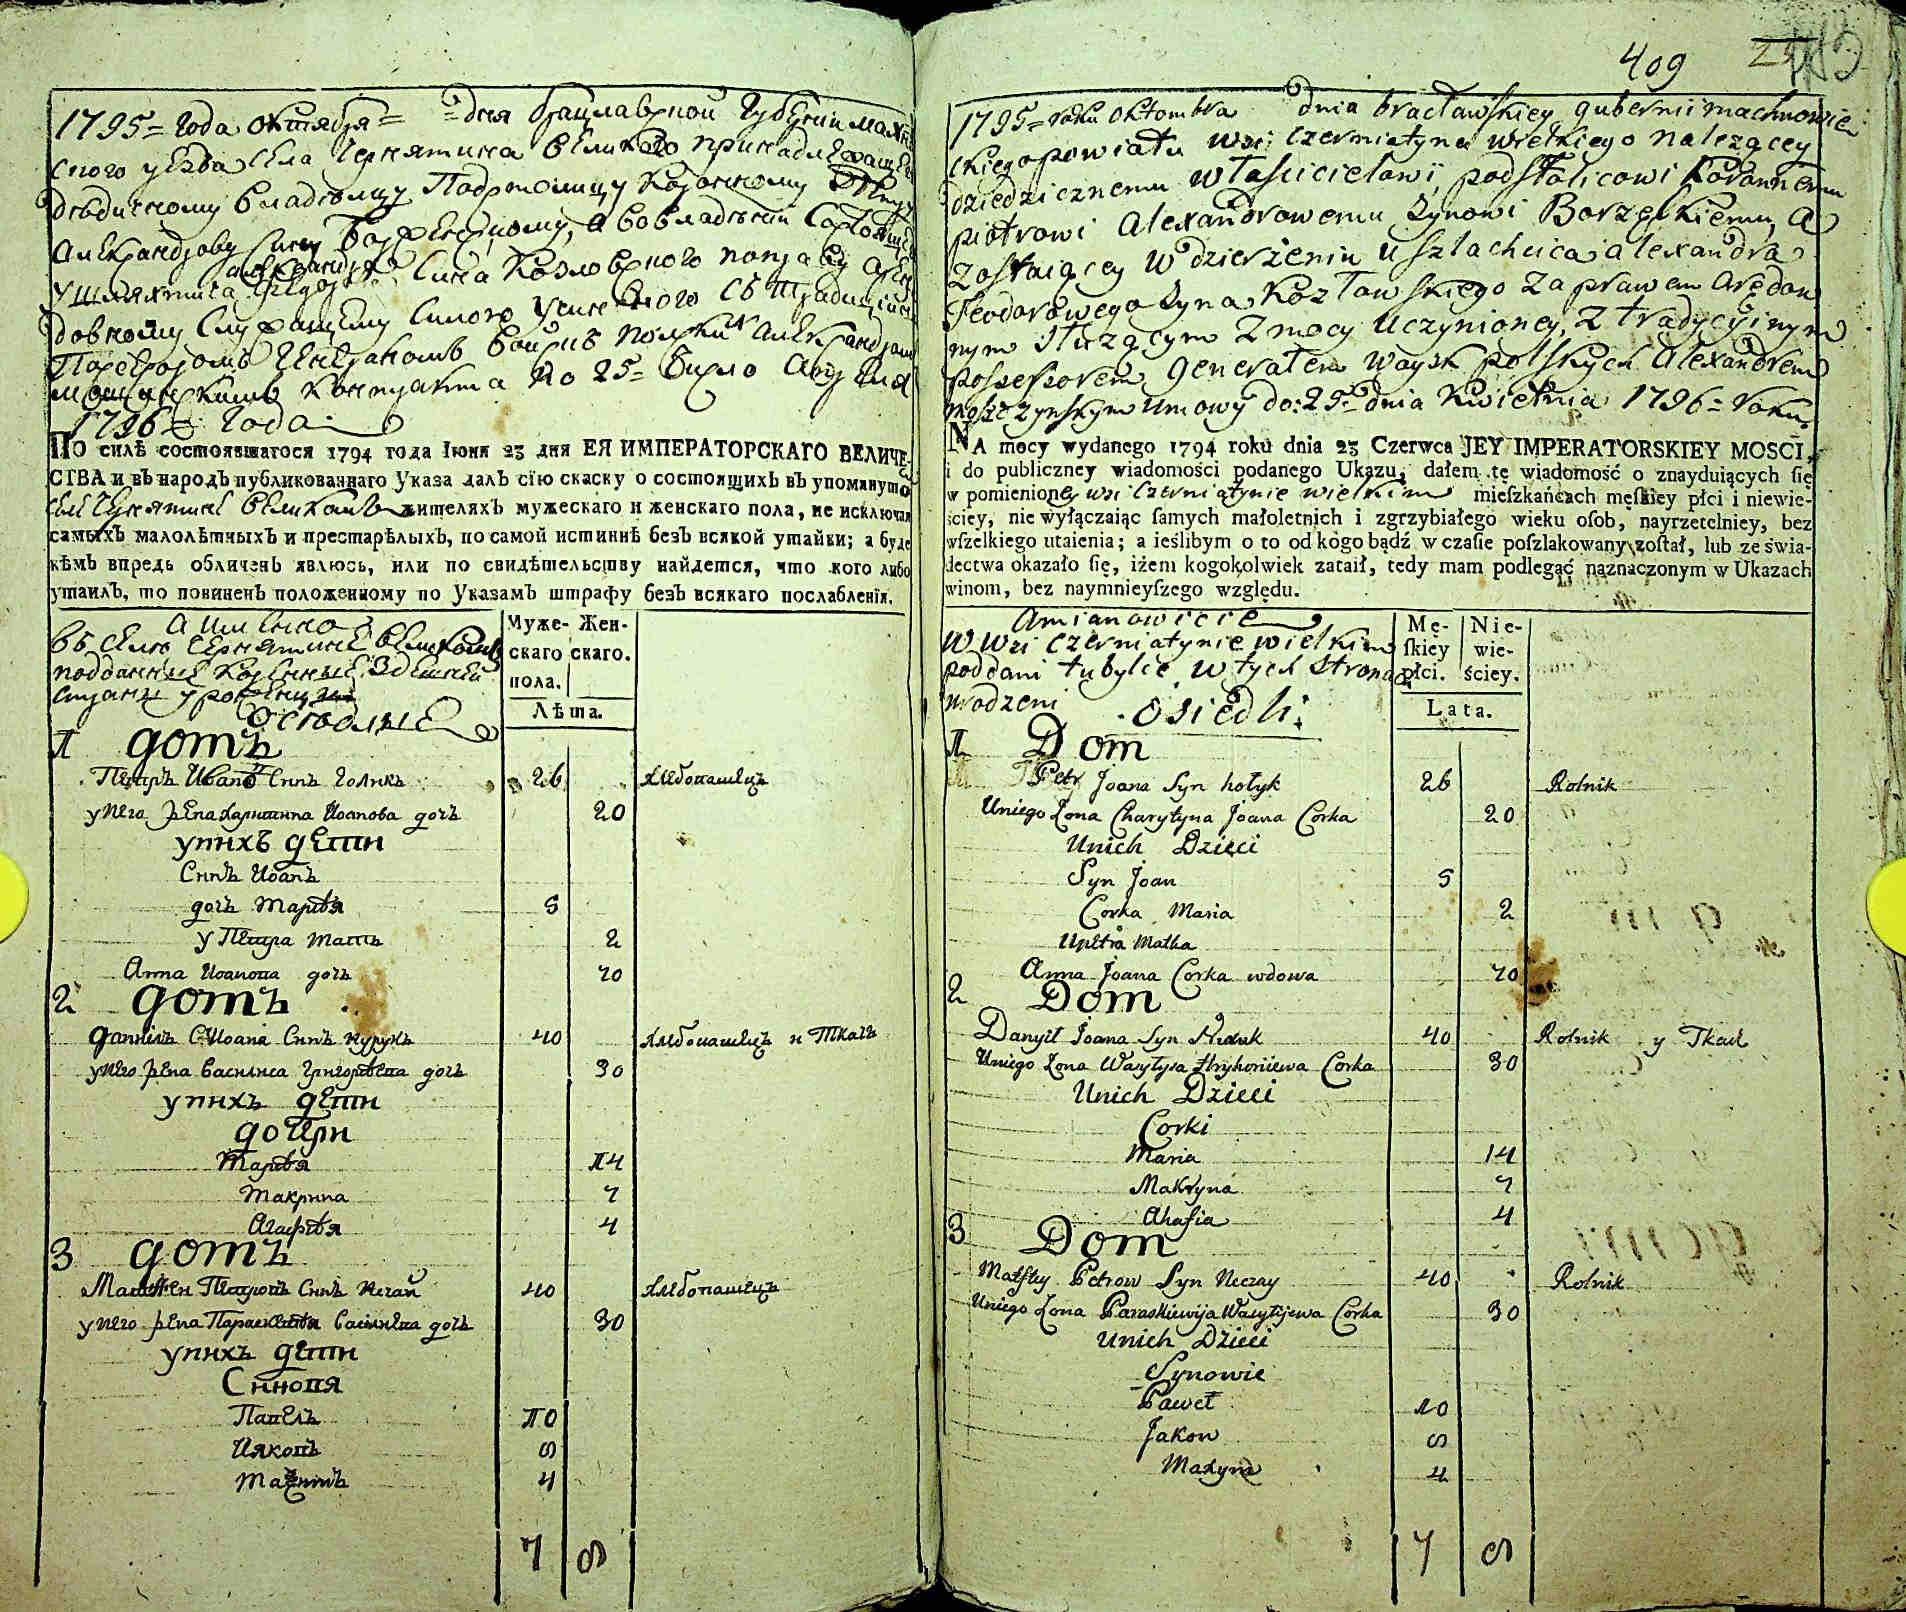 1795 = года октября = дня брацлавской губернии махнов
ского уезда села Чернятина великого принадлежащего
дѣдичному владѣльцу Подстолицу коронному Петру
Александрову сину Борженцкому, а во владѣнии состоящего
у шляхтича Александра Федора сина Козловского по праву арен
довному служащему силою учиненного съ традицийним
Посесоромъ Генераломъ войскъ полских Александром
Мощинскимъ контракта по 25 = число Апреля
1796 = года
ПО силѣ состоявшагося 1794 года Іюня 23 дня ЕЯ ИМПЕРАТОРСКАГО ВЕЛИЧЕ-
СТВА и въ народъ публикованнаго Указа далъ сію скаску о состоящихъ въ упомянуто
селе Чернятине великомъ жителяхъ мужескаго и женскаго пола, не исключая
самыхъ малолѣтныхъ и престарѣлыхъ, по самой истиннѣ безъ всякой утайки; а буде
кѣмъ впредь обличенъ явлюсь, или по свидѣтельству найдется, что кого либо
утаилъ, то повиненъ положенному по Указамъ штрафу безъ всякаго послабленія.
А имянно
въ селю Чернятине великомъ
подданные коренные здешней
страни урожденци
оселые
Муже-скаго пола. Жен-скаго.
Лѣта.
1 домъ
Петръ Иванов Синъ Голикъ 26 хлебопашецъ
у него жена Харитина Иоанова дочъ 20
у нихъ дети
Синъ Иоанъ
дочъ Марія 5
у Петра мать 2
Анна Иоанова дочъ 70
2 домъ
Данилъ Иоана Синъ 40 хлебопашецъ и Ткачъ
у него жена Василиса Григоріева дочъ 30
у нихъ дети
дочери
Марія 14
Макрина 7
Агафія 4
3 домъ
Матвей Петровъ Синъ Нечай 40 хлебопашецъ
у него жена Параскевія Василіева дочъ 30
у нихъ дети
Синовя
Павелъ 10
Ияковъ 8
Максимъ 4
7 8
409
1795 = roku Oktombra dnia bracławskiey gubernii machnowie
ckiego powiatu wsi Czerniatyna wielkiego nalezącey
dziedzicznemu własicielowi, podstolicowi koronnemu
piotrowi Alexandrowemu Synowi Borzęckiemu, a
zostaiącey w dzierżeniu u szlachcica alexandra
Feodorowego Syna Kozłowskiego za prawem Arędow
nym służącym z mocy uczynioney, z tradycyinym
possessorem generałem woysk polskych Alexandrem
moszczynskym umowy do: 25 = dnia Kwietnia 1796 = roku
NA mocy wydanego 1794 roku dnia 23 Czerwca JEY IMPERATORSKIEY MOSCI,
i do publiczney wiadomości podanego Ukazu, dałem tę wiadomość o znayduiących się
w pomienioney wsi Czerniatynie wielkim mieszkańcach męskiey płci i niewie-
ściey, nie wyłączaiąc samych małoletnich i zgrzybiałego wieku osob, nayrzetelniey, bez
wszelkiego utaienia; a ieślibym o to od kogo bądź w czasie poszlakowany został, lub ze świa-
dectwa okazało się, iżem kogokolwiek zataił, tedy mam podlegąć naznaczonym w Ukazach
winom, bez naymnieyszego względu.
Amianowicie
w wsi Czerniatynie wielkim
poddani tubylce w tych stronach
urodzeni
osiedli:
Mę-skiey płci. Nie-wie-ściey.
Lata.
1 Dom
Petr Joana Syn hołyk 26 Rolnik
Uniego Zona Charytyna Joana Corka 20
Unich Dzieci
Syn Joan 5
Corka Maria 2
Upetra Matka
Anna Joana Corka wdowa 70
2 Dom
Danyił Joana Syn 40 Rolnik y Tkacz
Uniego Zona Wasylysa Hryhoriiewa Corka 30
Unich Dzieci
Corki
Maria 14
Makryna 7
Ahafia 4
3 Dom
Matfiy Petrow Syn Neczay 40 Rolnik
Uniego Zona Paraskiewija Wasylijewa Corka 30
Unich Dzieci
Synowie
Paweł 10
Jakow 8
Maxym 4
7 8